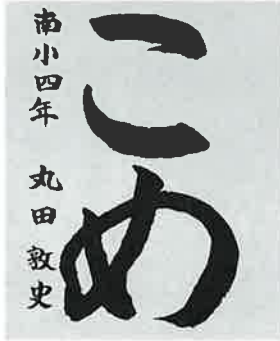 こめ
南小四年 丸田敦史